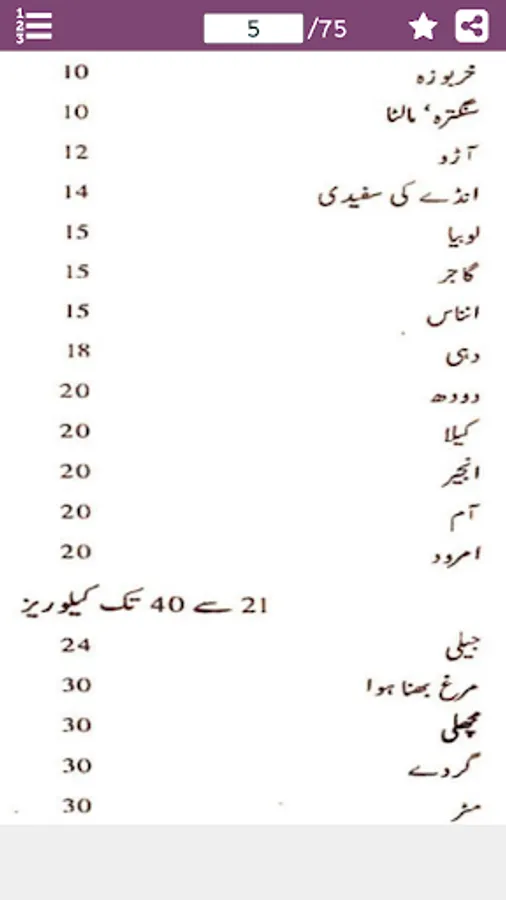 5 /75
خربوزہ 10
سنگترہ، مالٹا 10
آڑو 12
انڈے کی سفیدی 14
لوبیا 15
گاجر 15
انناس 15
دہی 18
دودھ 20
کیلا 20
انجیر 20
آم 20
امرود 20
21 سے 40 تک کیلوریز
جیلی 24
مرغ بھنا ہوا 30
مچھلی 30
گردے 30
مٹر 30